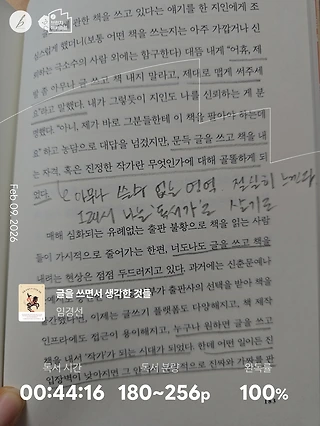 이러한 책을 쓰고 있다는 얘기를 한 지인에게 조
심스럽게 했더니(보통 어떤 책을 쓰는지는 아주 가깝거나 신
뢰하는 극소수의 사람 외에는 함구한다) 대뜸 내게 "어휴, 제
발 좀 아무나 글 쓰고 책 내지 말라고, 제대로 맵게 써주세
요"라고 말했다. 내가 그렇듯이 지인도 나를 신뢰하는 게 분
명했다. "아니, 제가 바로 그분들한테 이 책을 팔아야 하는데
요"하고 농담으로 대답을 넘겼지만, 문득 글을 쓰고 책을 내
는 자격, 혹은 진정한 작가란 무엇인가에 대해 골똘하게 되
었다.
아무나 쓸 수 없는 영역 절실히 느낀다
그래서 나는 '독서가'로 살기로
매해 심화되는 유례없는 출판 불황으로 책을 읽는 사람
들이 가시적으로 줄어가는 한편, 너도나도 글을 쓰고 책을
내려는 현상은 점점 두드러지고 있다. 과거에는 신춘문예나
출판사의 선택을 받아 책을
이제는 글쓰기 플랫폼도 다양해지고, 책 제작
인프라에도 접근이 용이해지고, 누구나 원하면 글을 쓰고
책을 내서 '작가'가 되는 시대가 되었다. 한데 어떤 일이든 진
입장벽이 낮아지면 그 안
Feb 09, 2026
글을 쓰면서 생각한 것들
임경선
독서 시간 독서 분량 완독률
00:44:16 180~256p 100%